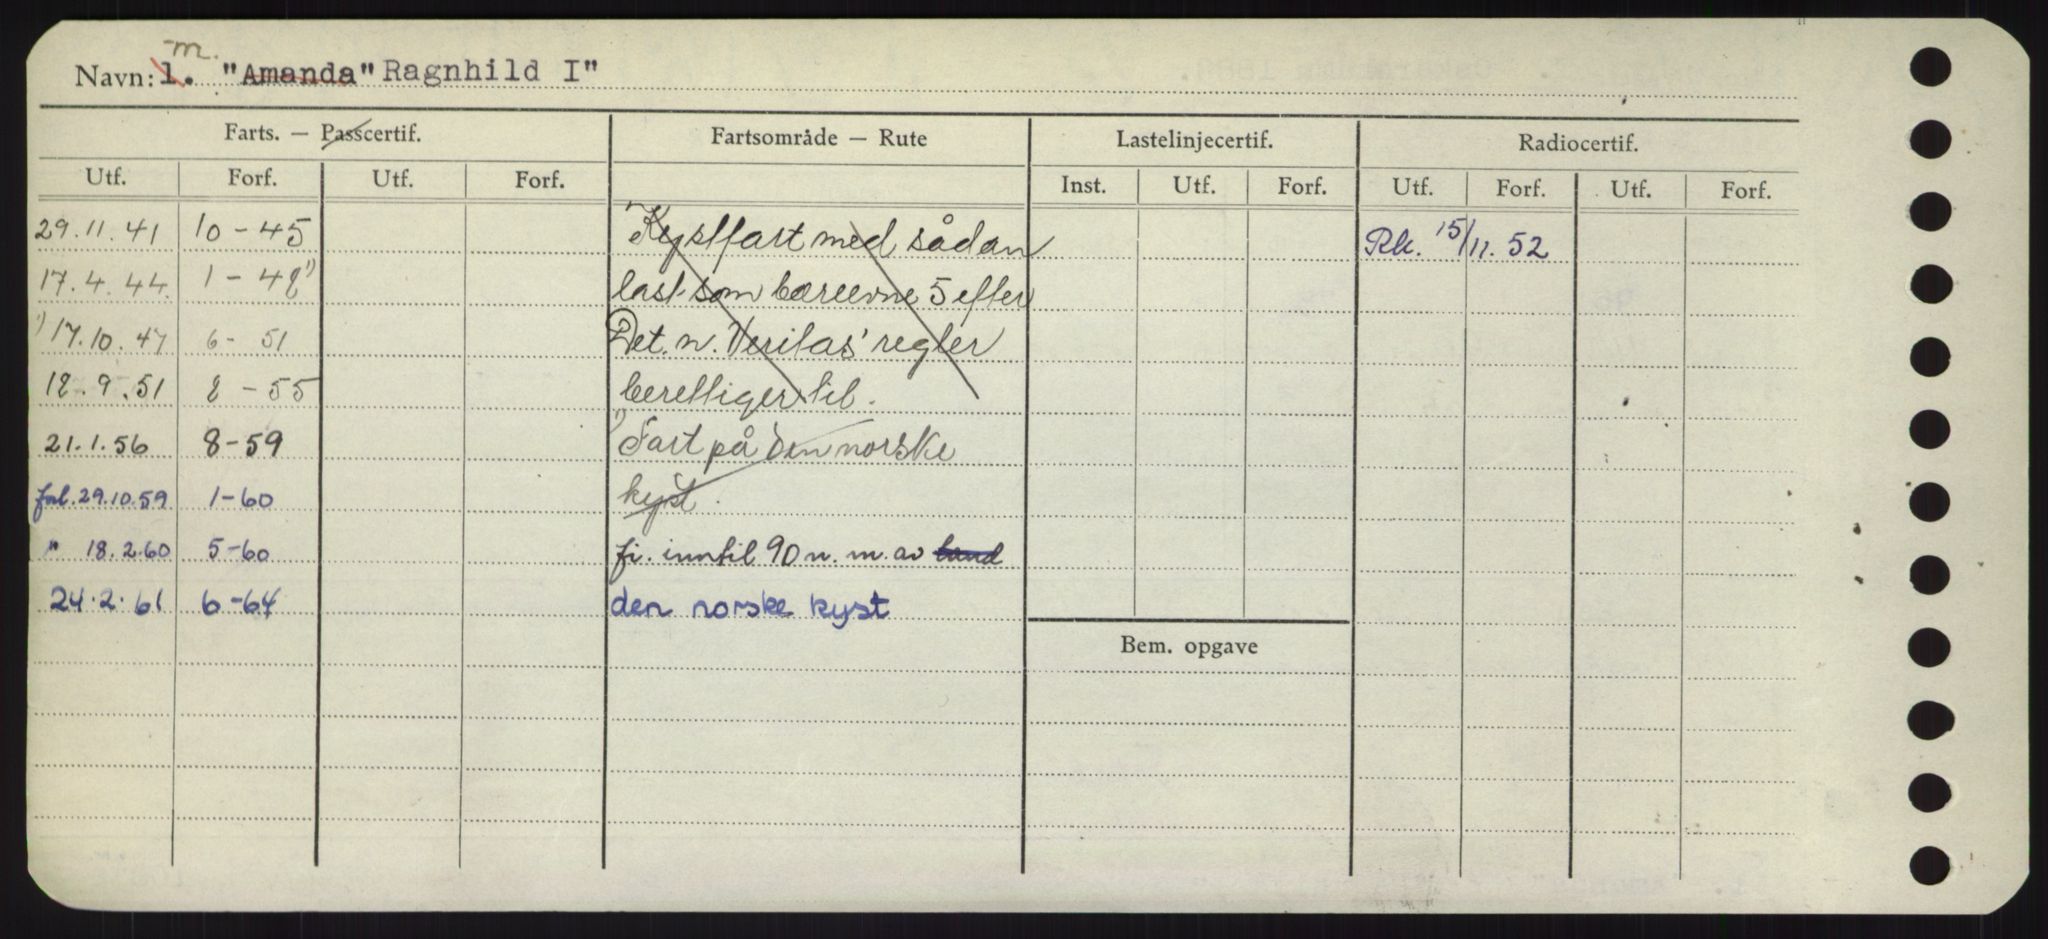 m.
Navn: l. "Amanda" Ragnhild I"
Farts. — Passcertif. Fartsområde — Rute Lastelinjecertif. Radiocertif.
Utf. Forf. Utf. Forf. Inst. Utf. Forf. Utf. Forf. Utf. Forf.
29.11.41 10-45 Kystfart med sådan Rk. 15/11.52
17.4.44 1-48 1) last som bæreevne 5 efter
1) 17.10.47 6-51 Det. n. Veritas' regler
18.9.51 8-55 berettiger til.
21.1.56 8-59 1) Fart på den norske
forl. 29.10.59 1-60 kyst.
" 18.2.60 5-60 fi. inntil 90 n. m. av land
24.2.61 6-64 den norske kyst
Bem. opgave